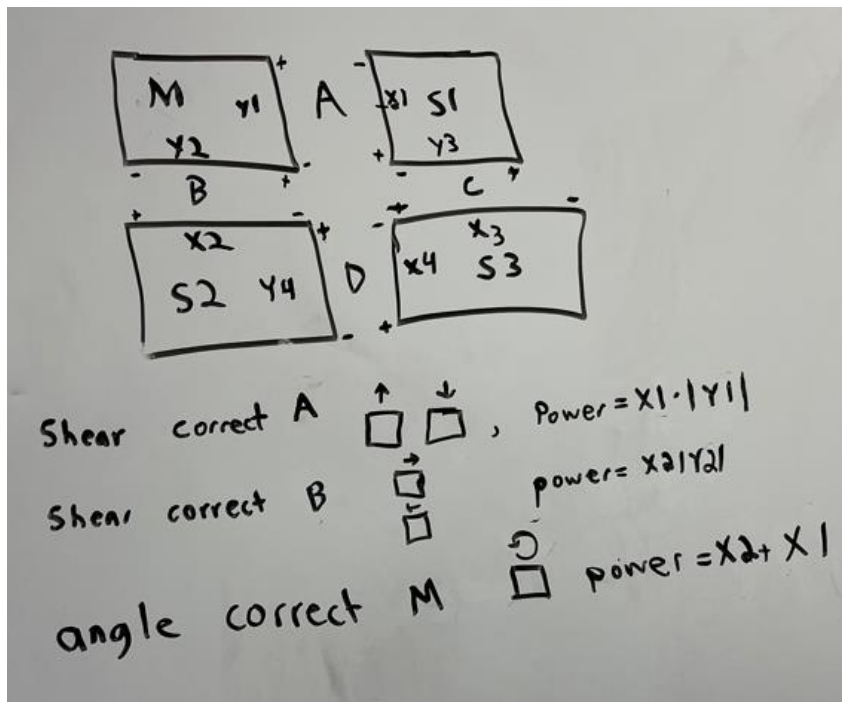 + -
M Y1 A X1 S1
Y2 + Y3
- + - - +
B C
+ - + + - -
X2 X3
S2 Y4 D X4 S3
- +
Shear correct A ↑ ↓ , Power = X1·|Y1|
Shear correct B → ← power = X2|Y2|
angle correct M power = X2 + X1